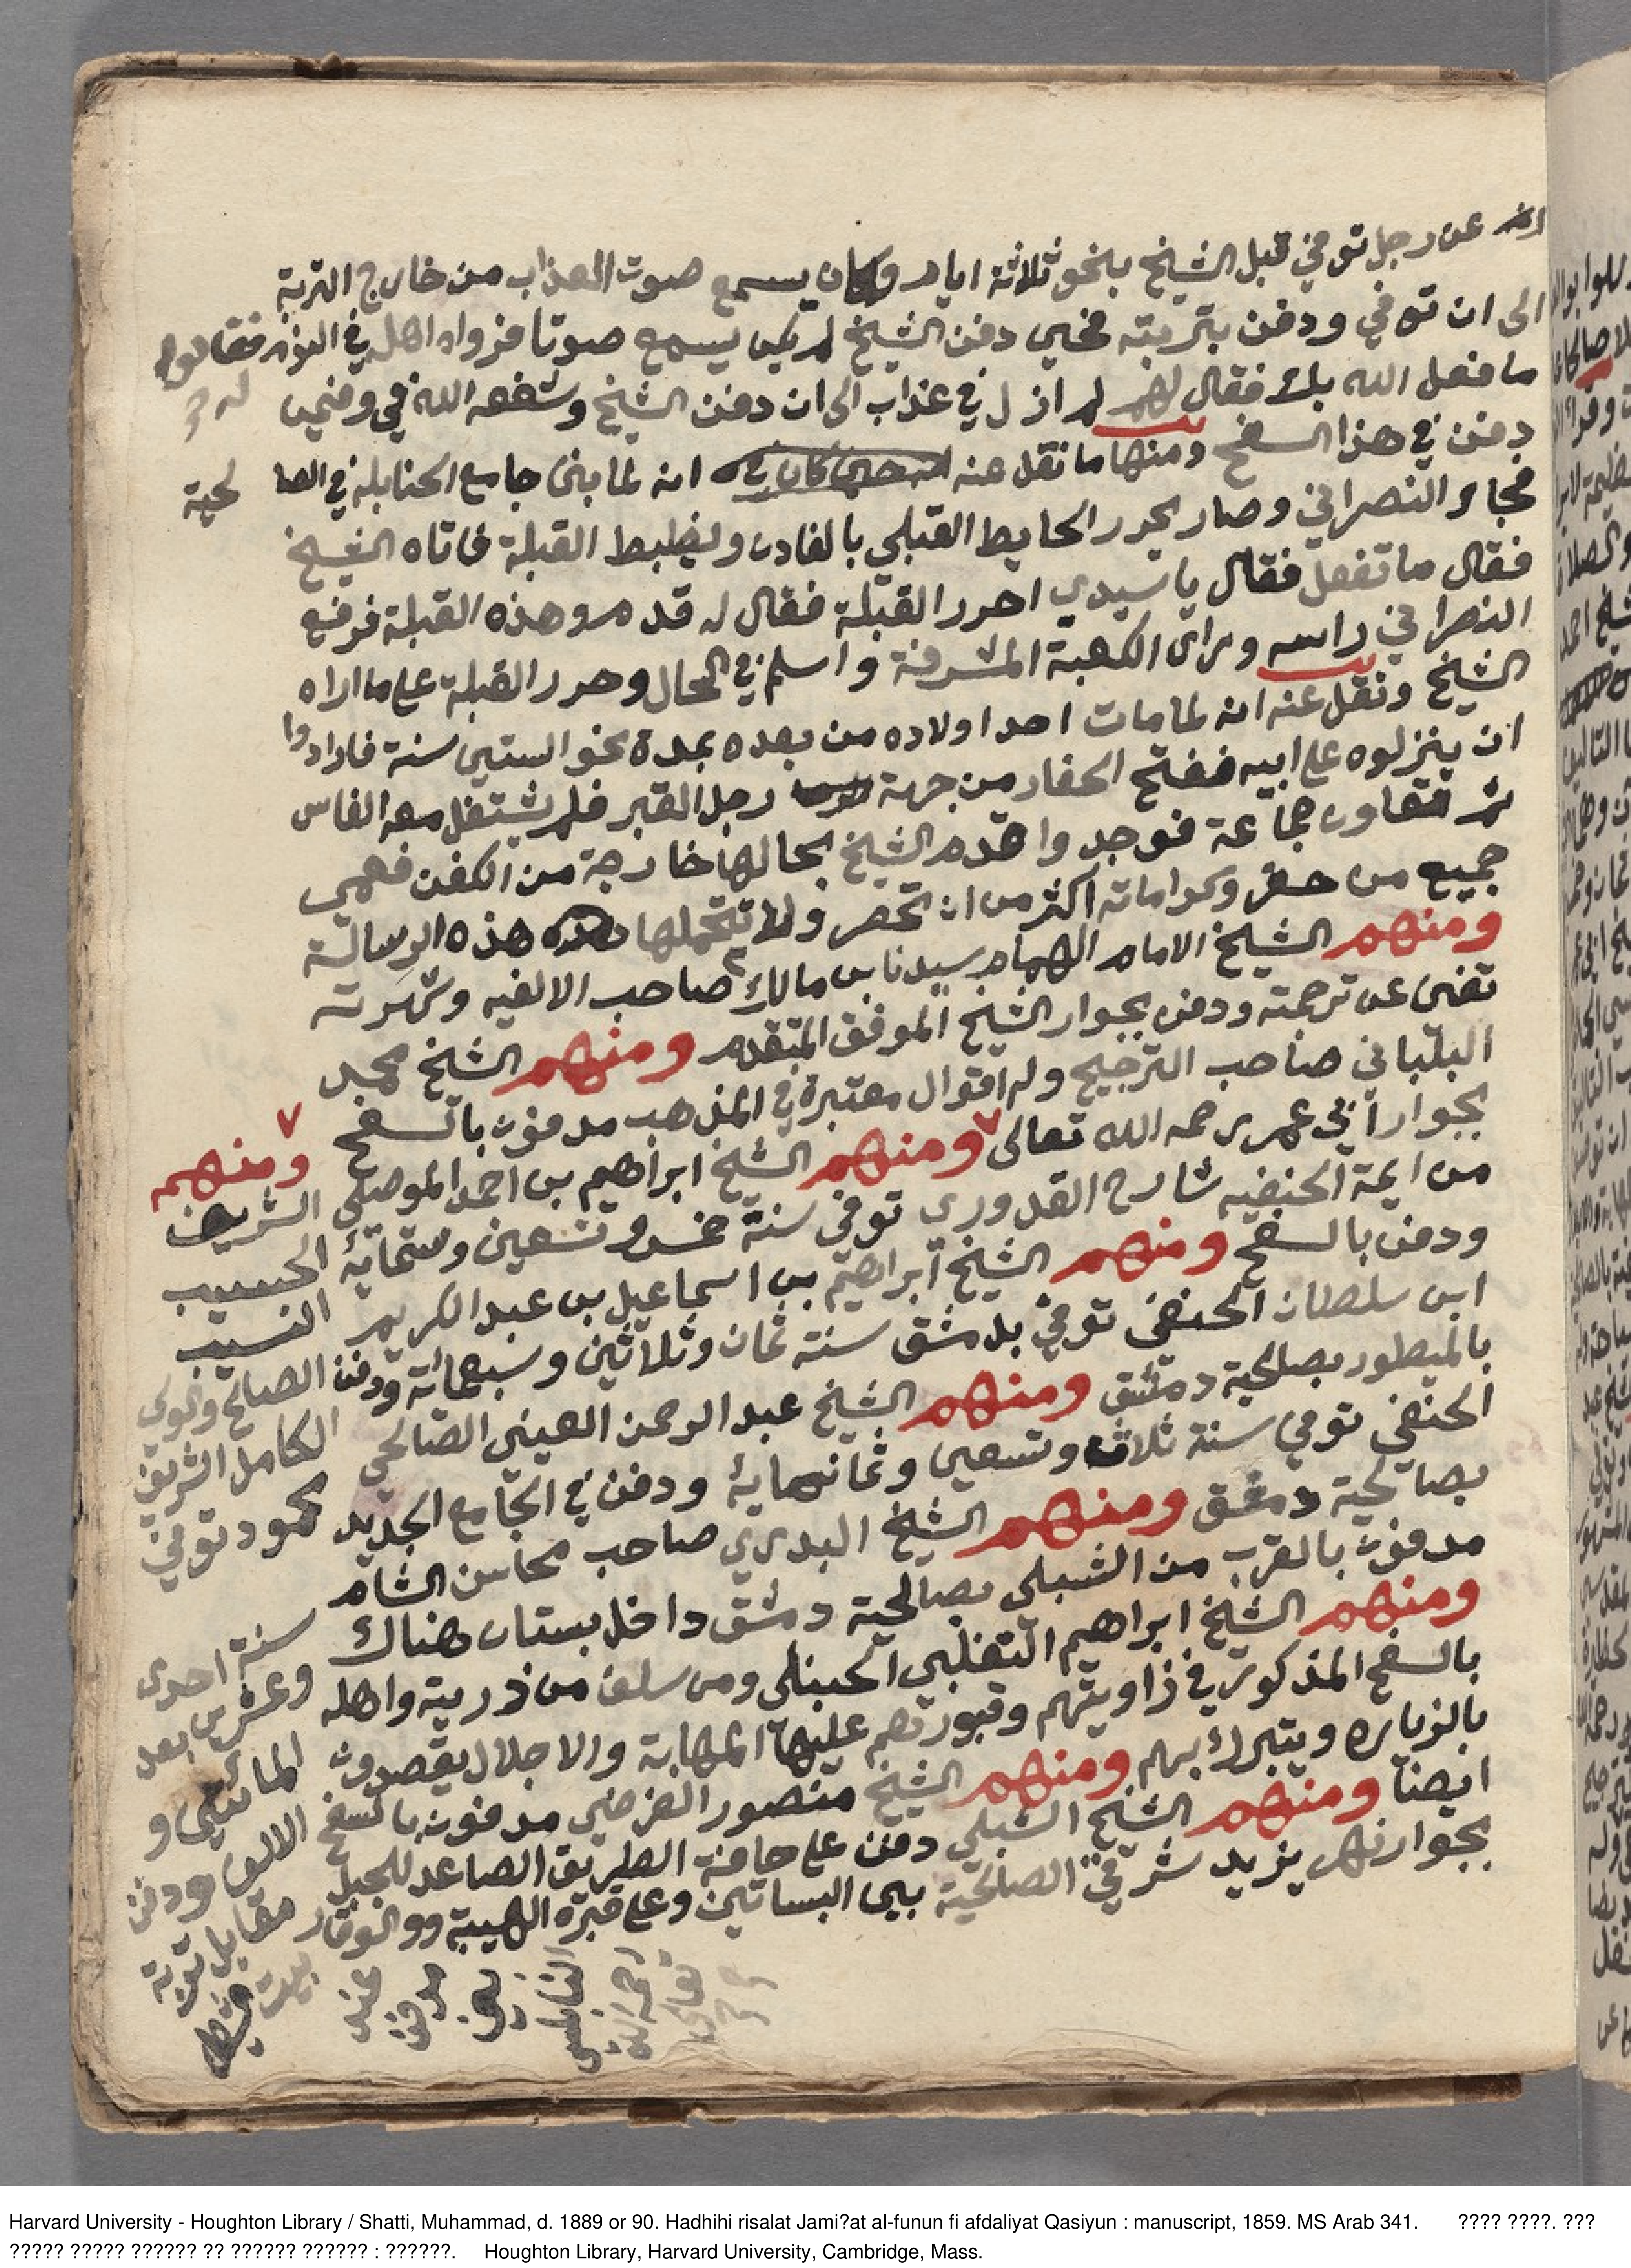 انه عن رجل توفي قبل الشيخ بنحو ثلاثة ايام وكان يسمع صوت العذاب من خارج التربة
الى ان توفي ودفن بتربته فحين دفن الشيخ لم يكن يسمع صوتا فرواه اهله في النوم فقالوا له
ما فعل الله بك فقال لهم لم ازل في عذاب الى ان دفن الشيخ وشفعه الله في وفيمن
دفن في هذا السفح ومنها ما نقل عنه انه لما بنى جامع الحنابلة في الصالحية
فجاء النصراني وصار يحرر الحايط القبلي بالفادن وليظبط القبلة فاتاه الشيخ
فقال ما تفعل فقال يا سيدي احرر القبلة فقال له قدمو هذه القبلة فرفع
النصراني راسه وراى الكعبة المشرفة واسلم في الحال وحرر القبلة على ما اراه
الشيخ ونقل عنه انه لما مات احد اولاده من بعده بمدة نحو الستين سنة فارادوا
ان ينزلوه على ابيه ففتح الحفار من جهة رجل القبر فلم يشتغل معه الفاس
ثم تعاون جماعة فوجدوا قدم الشيخ بحالها خارجة من الكفن فهمي
جميع من حضر وكراماته اكثر من ان تحصر ولا تتحملها هذه الرسالة
ومنهم الشيخ الامام الهمام سيدنا بن مالك صاحب الالفيه وشهرته
تغني عن ترجمته ودفن بجوار الشيخ الموفق المتقدم ومنهم الشيخ محمد
البلباني صاحب الترجيح وله اقوال معتبرة في المذهب مدفون بالسفح
بجوار ابي عمر رحمه الله تعالى ومنهم الشيخ ابراهيم بن احمد الموصلي
من ايمة الحنفيه شارح القدوري توفي سنة خمس وتسعين وستماية
ودفن بالسفح ومنهم الشيخ ابراهيم بن اسماعيل بن عبد الكريم
ابن سلطان الحنفي توفي بدمشق سنة ثمان وثلاثين وسبعمائة ودفن
بالميطور بصالحية دمشق ومنهم الشيخ عبد الرحمن العيني الصالحي
الحنفي توفي سنة ثلاث وتسعين وثمانماية ودفن في الجامع الجديد
بصالحية دمشق ومنهم الشيخ البدري صاحب محاسن الشام
مدفون بالقرب من الشبلي بصالحية دمشق داخل بستان هناك
ومنهم الشيخ ابراهيم التغلبي الحنبلي ومن سلف من ذريته واهله
بالسفح المذكور في زاويتهم وقبورهم عليها المهابة والاجلال يقصدون
بالزياره ويتبرك بهم ومنهم الشيخ منصور الفرضي مدفون بالسفح
ايضا ومنهم الشيخ الشبلي دفن على حافة الطريق الصاعد للجبل
بجوار نهر يزيد شرقي الصالحية بين البساتين وعلى قبره الهيبة والوقار
ومنهم
الشريف
الحسيب
النسيب
الصالح والولي
الكامل الشريف
محمود توفي
سنة احدى
وعشرين بعد
المائتين و
الالف ودفن
مقابل تربة
النابلسي
رحمه الله
تعالى
Harvard University - Houghton Library / Shatti, Muhammad, d. 1889 or 90. Hadhihi risalat Jami?at al-funun fi afdaliyat Qasiyun : manuscript, 1859. MS Arab 341. ???? ????. ???
????? ????? ?????? ?? ?????? ?????? : ??????. Houghton Library, Harvard University, Cambridge, Mass.